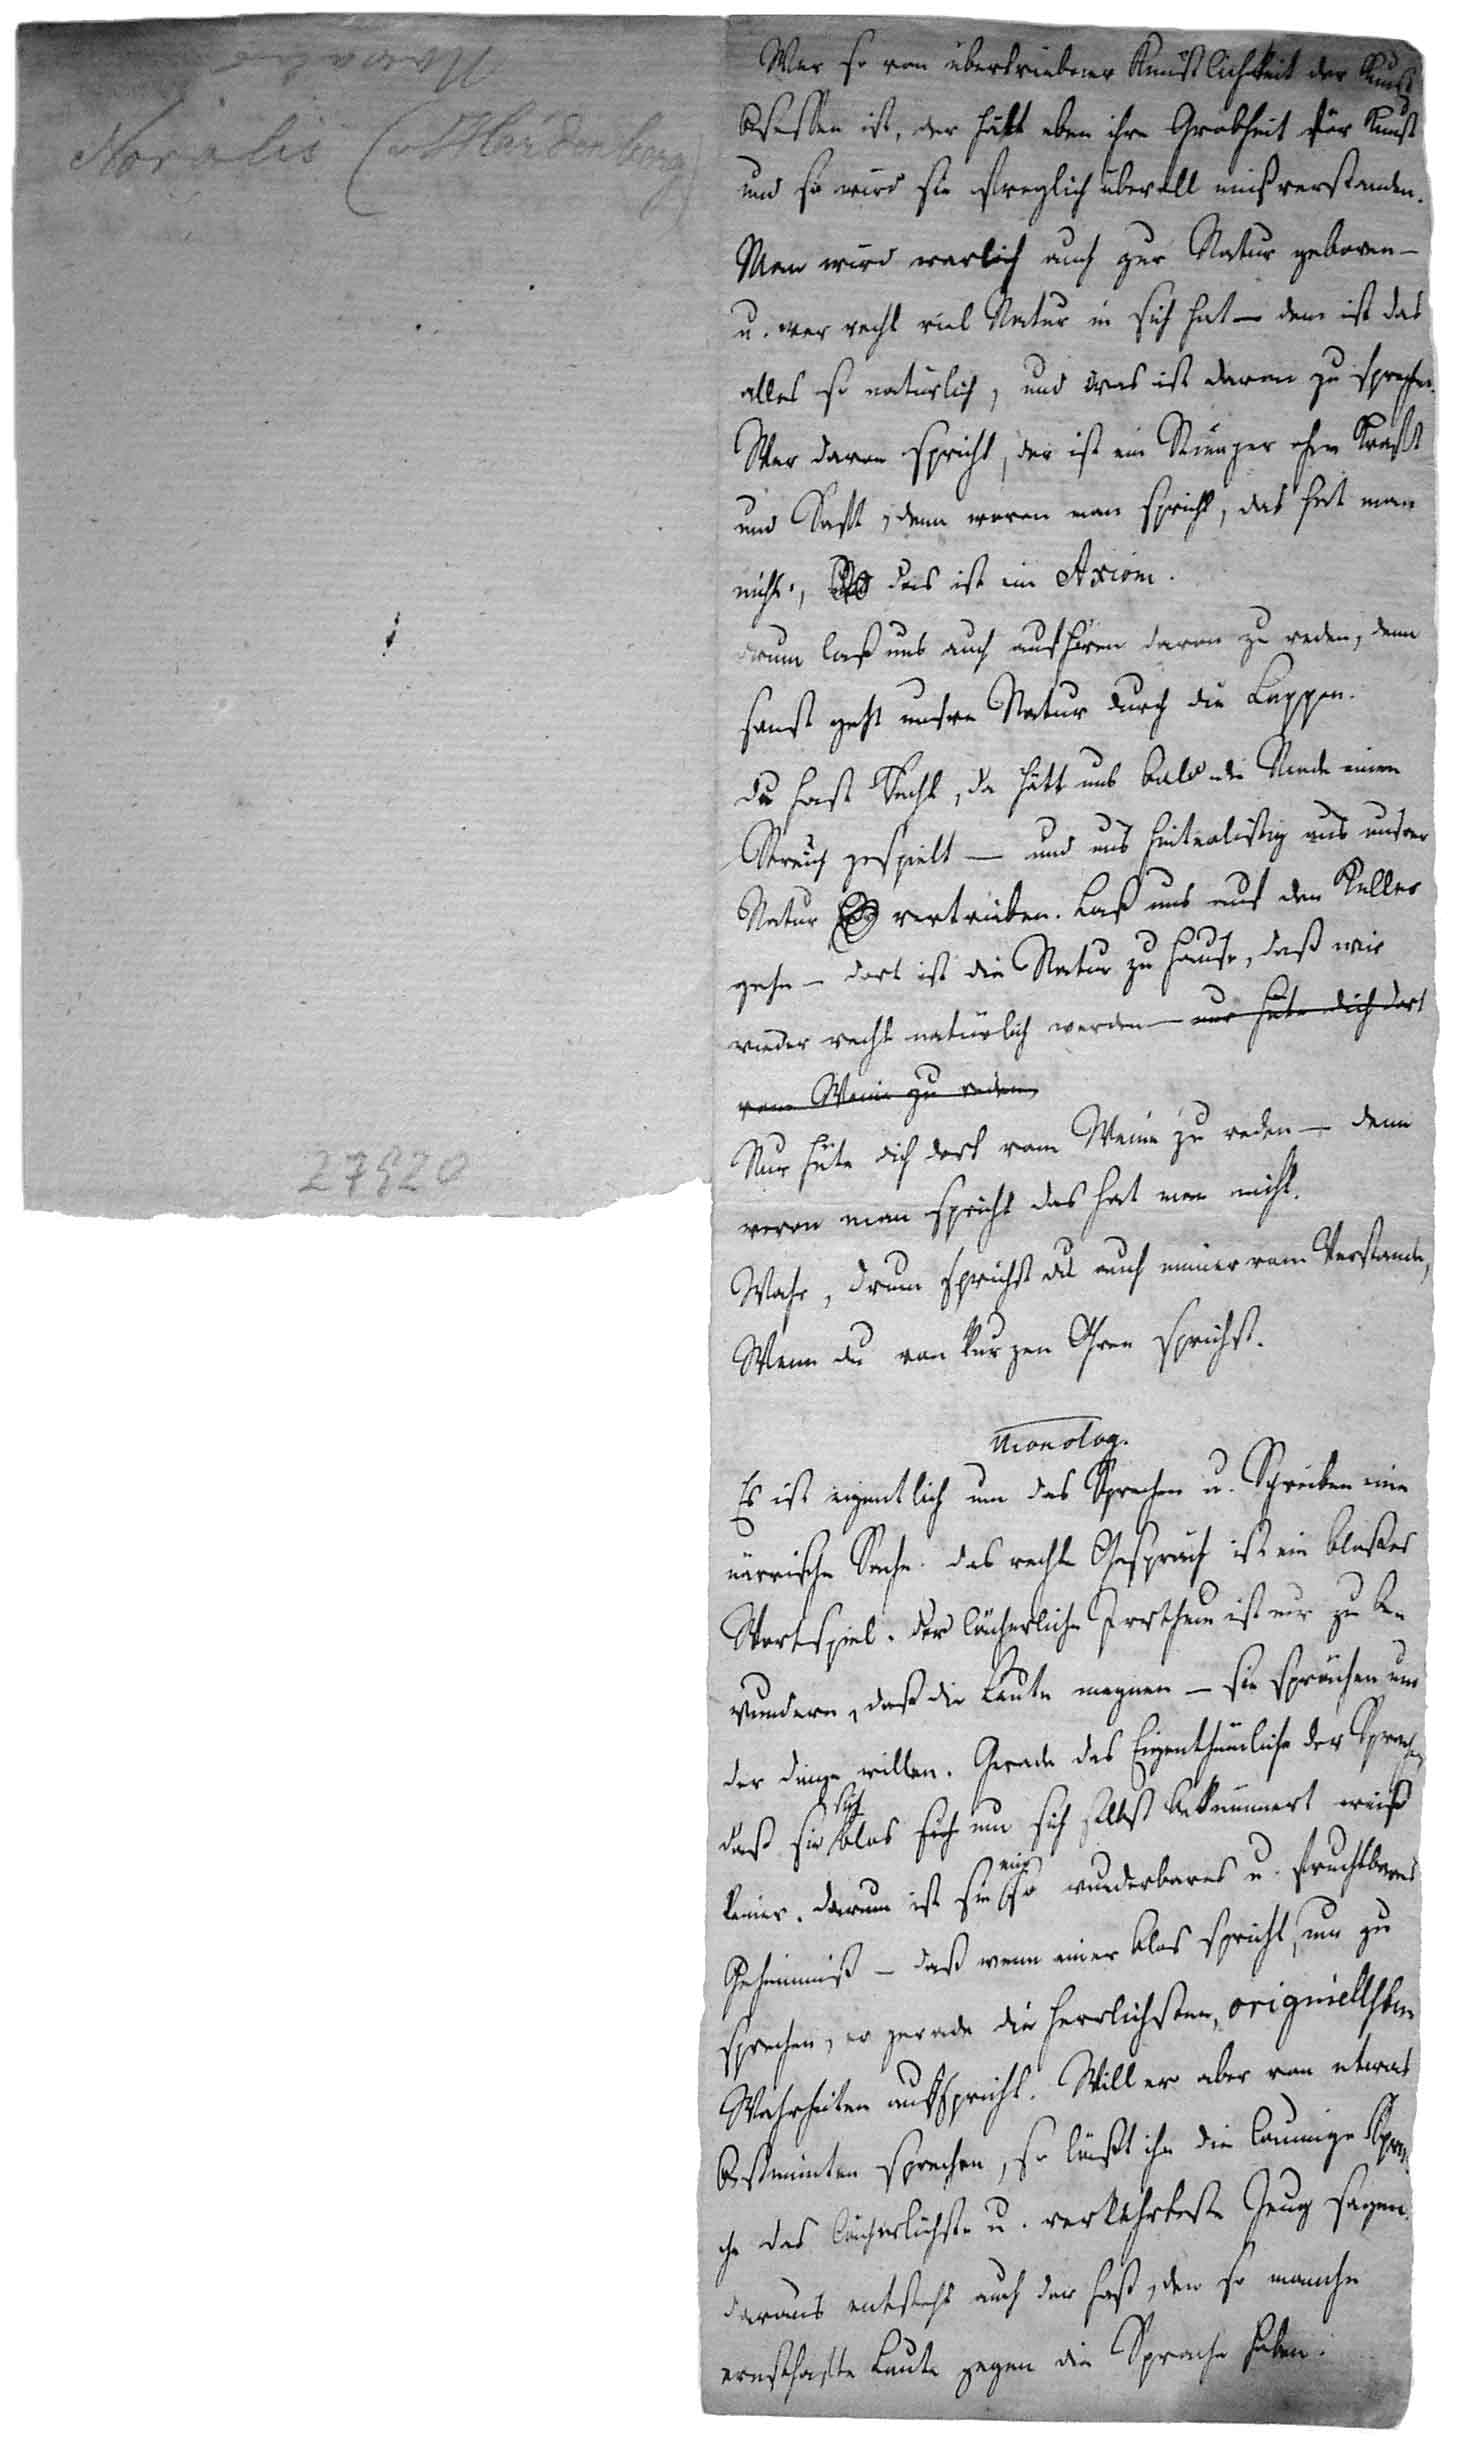 Novalis
Novalis (v Hardenberg)
27920
Wer so von übertriebner Künstlichkeit der Kunst
besessen ist, der hält eben ihre Grobheit für Kunst
und so wird sie freylich überall mißverstanden.
Man wird warlich auch zur Natur geboren –
u. wer recht viel Natur in sich hat – dem ist das
alles so natürlich, und was ist davon zu sprechen.
Wer davon spricht, der ist ein Stümper ohne Kraft
und Saft, denn wovon man spricht, das hat man
nicht, das ist ein Axiom.
drum laß uns auch aufhören davon zu reden, denn
sonst geht unsre Natur durch die Lappen.
du hast Recht, da hätt uns bald die Mode einen
Streich gespielt – und uns hinterlistig aus unsrer
Natur vertrieben. Laß uns auf den Keller
gehn – dort ist die Natur zu Hause, daß wir
wieder recht natürlich werden – nur hüte dich dort
vom Weine zu reden,
Nur hüte dich dort vom Weine zu reden – denn
wovon man spricht das hat man nicht.
Wahr, drum sprichst du auch immer vom Verstande,
Wenn du von kurzen Ohren sprichst.
Monolog.
Es ist eigentlich um das Sprechen u. Schreiben eine
närrische Sache. das rechte Gespräch ist ein bloßes
Wortspiel. der lächerliche Irrthum ist nur zu be
wundern, daß die Leute meynen – sie sprächen um
der dinge willen. Gerade das Eigenthümliche der Sprache,
sich
daß sie blos sich um sich selbst bekümmert weiß
ein
keiner. darum ist sie so wunderbares u. fruchtbares
Geheimniß – daß wenn einer blos spricht, um zu
sprechen, er gerade die herrlichsten, originellsten
Wahrheiten ausspricht. Will er aber von etwas
bestimmten sprechen, so läßt ihn die launige Spra
che das lächerlichste u. verkehrteste Zeug sagen.
daraus entsteht auch der Haß, den so manche
ernsthafte Leute gegen die Sprache haben.